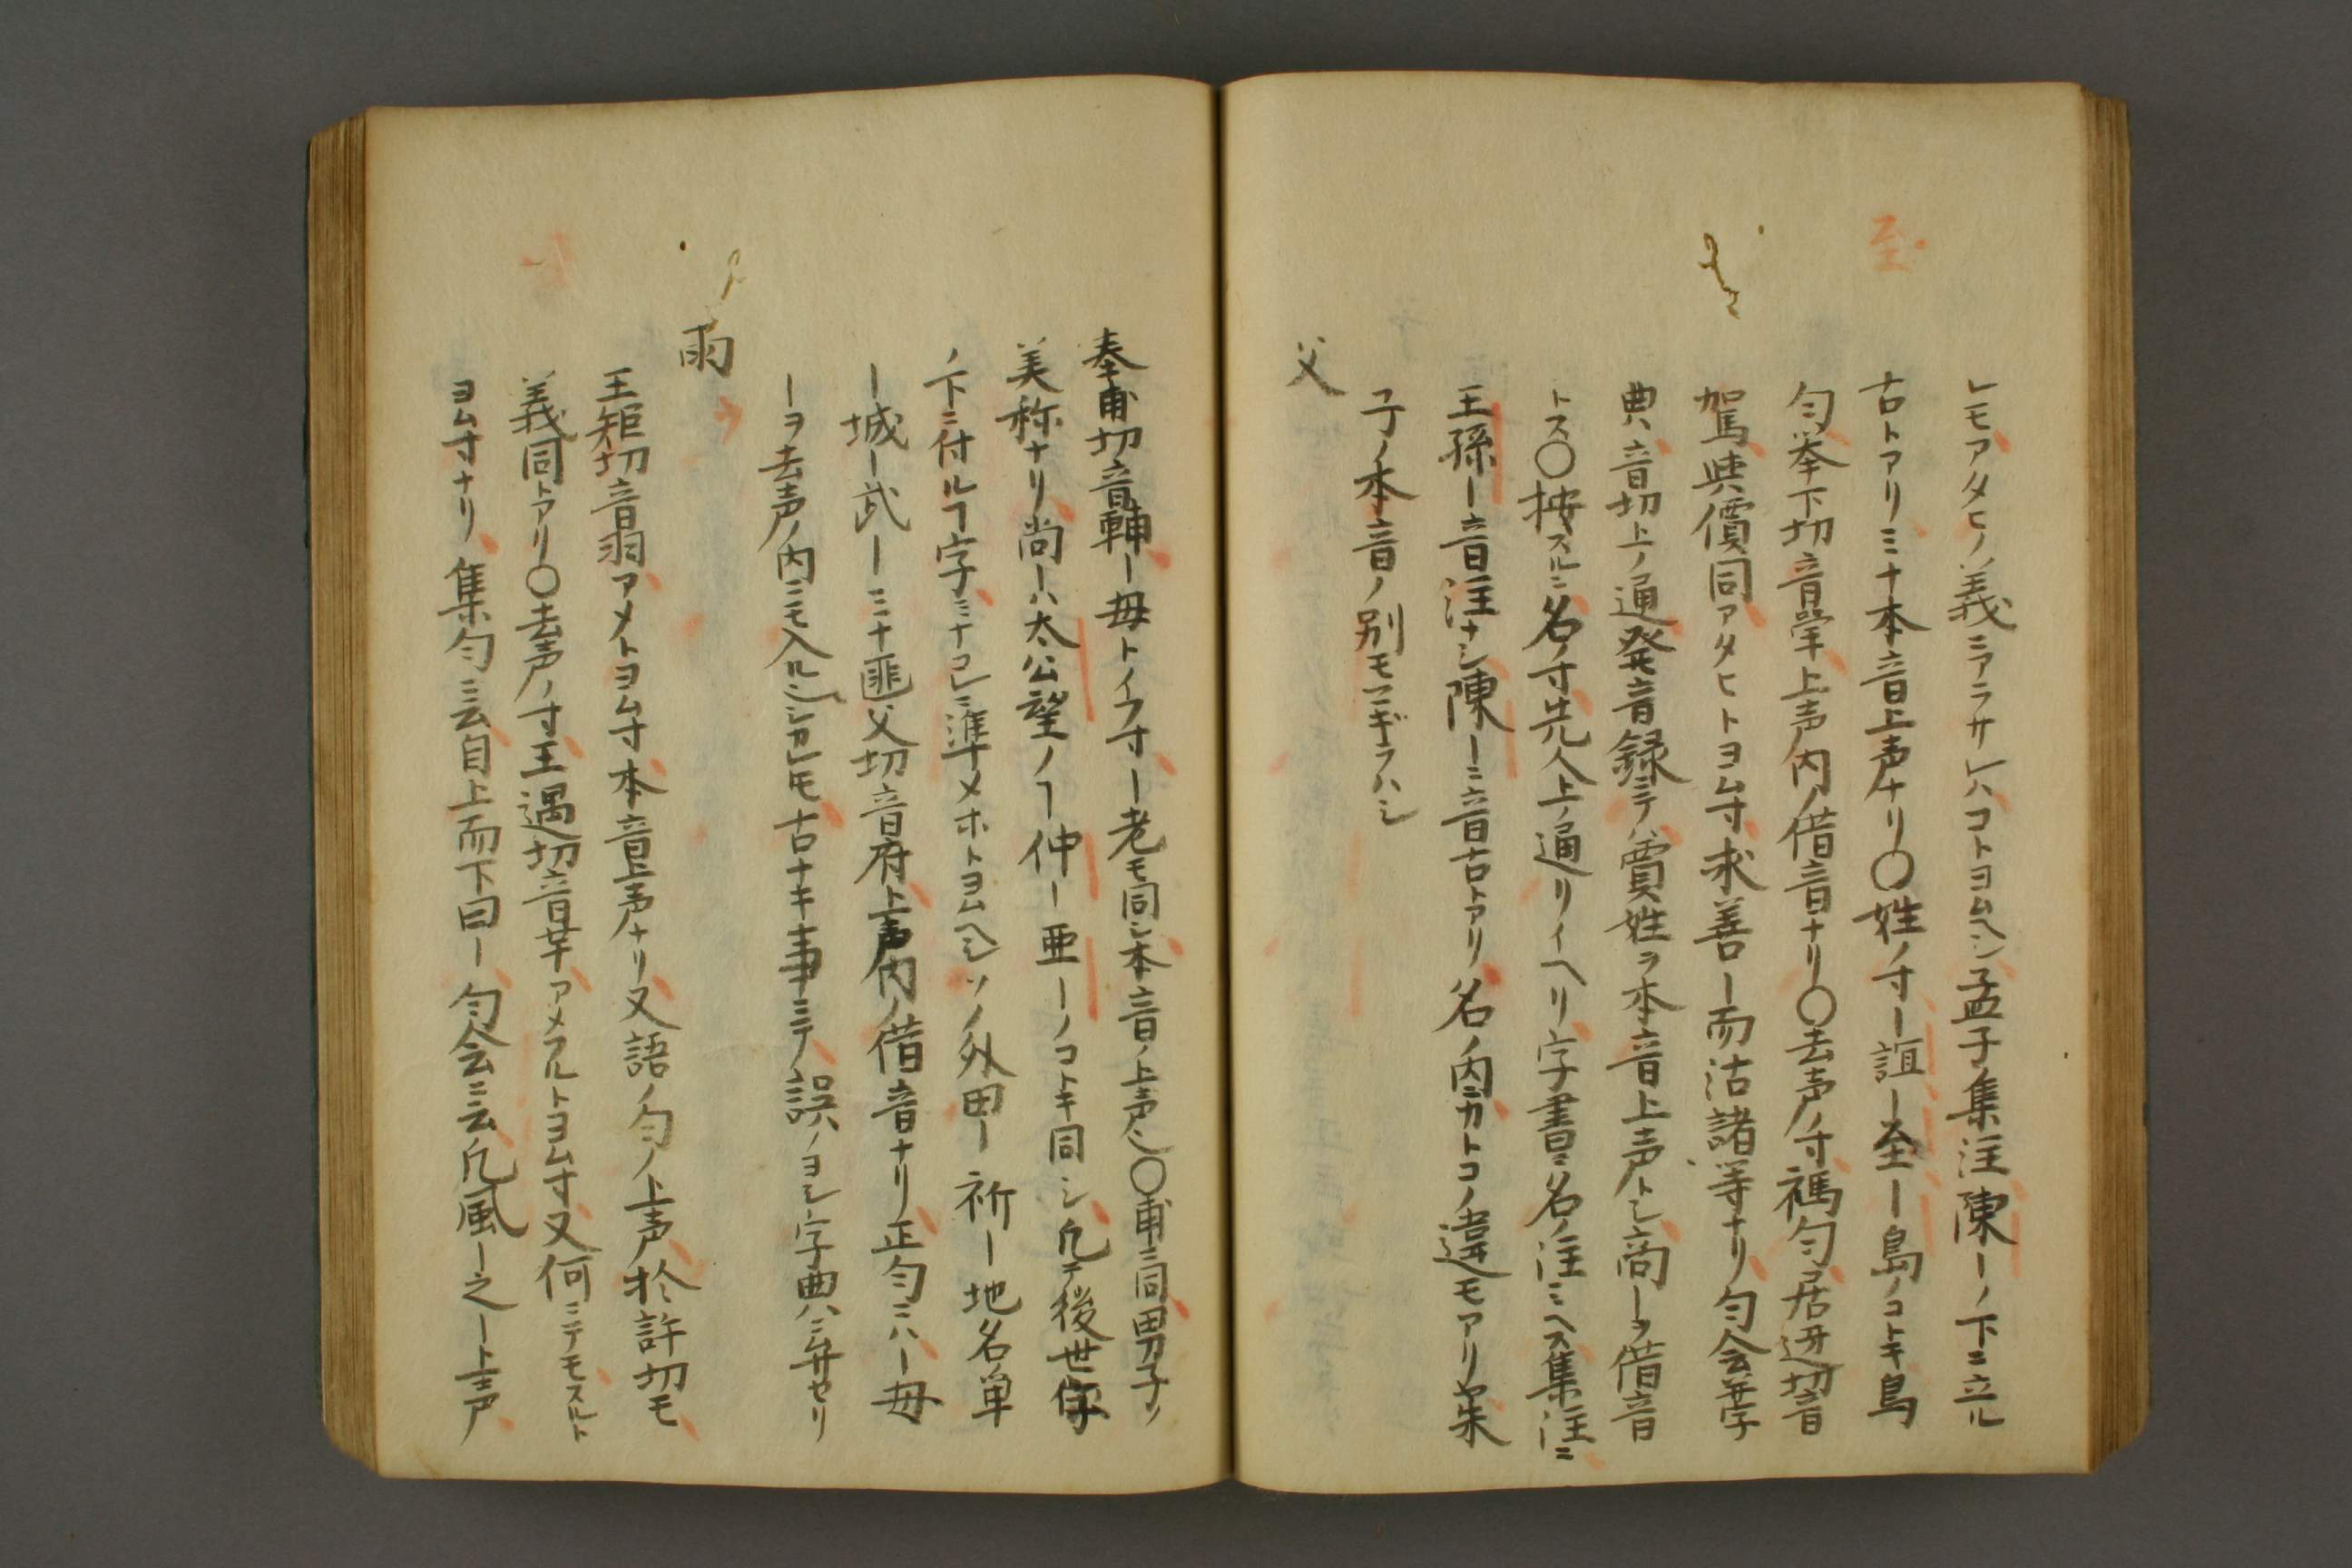 至
レモアタヒノ義ニアラサレハコトヨムヘシ孟子集注陳ーノ下ニ立ル
古トアリミナ本音上声ナリ〇姓ノ寸ー誼ー至ー島ノコトキ島
匀挙下切音斝上声内ノ借音ナリ〇去声ノ寸禡匀居迓切音
駕與價同アタヒトヨム寸求善ー而沽諸等ナリ匀会並字
典ハ音切上ノ通発音録ニテノ賈姓ヲ本音上声トシ商ーヲ借音
トス〇按スルニ名ノ寸先人上ノ通リイヘリ字書ニ名ノ注ミヘス集注ニ
王孫ー音注ナシ陳ーニ音古トアリ名ノ内ニカトコノ違モアリ朱
子ノ本音ノ別モマギラハシ
父
奉甫切音輔ー母トイフ寸ー老モ同シ本音ノ上声也〇甫ニ同男子ノ
美称ナリ尚ーハ太公望ノヿ仲ー亜ーノコトキ同シ凡テ後世字
ノ下ニ付ルヿ字ミナコレニ準メホトヨムヘシソノ外甲ー祈ー地名単
ー城ー武ーミナ匪父切音府上声内ノ借音ナリ正匀ニハー母
ーヲ去声ノ内ニモ入ルシカレモ古ナキ事ニテ誤ノヨシ字典ハニ弁セリ
雨
王矩切音羽アメトヨム寸本音上声ナリ又語ノ匀ノ上声於許切モ
義同トアリ〇去声ノ寸王遇切音芋アメフルトヨム寸又何ニテモスルト
ヨム寸ナリ集匀ニ云自上而下曰ー匀会ニ云凡風ー之ー上声